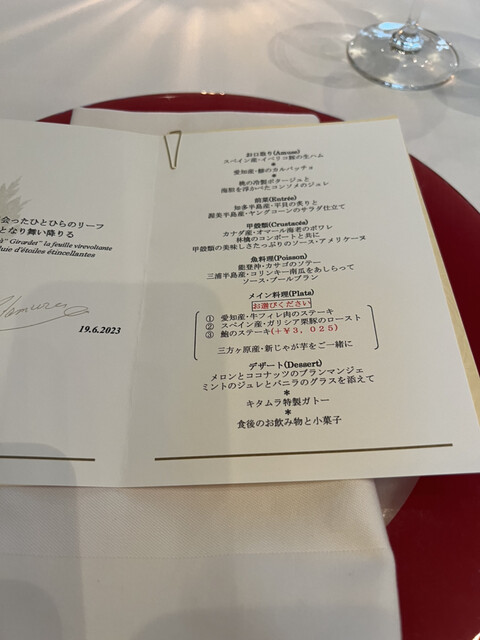 会ったひとひらのリーフ
となり舞い降りる
Girardet" la feuille virevoltante
luie d'étoiles étincellantes
19.6.2023
お口取り(Amuse)
スペイン産・イベリコ豚の生ハム
*
愛知産・鯵のカルパッチョ
*
桃の冷製ポタージュと
海胆を浮かべたコンソメのジュレ
前菜(Entrée)
知多半島産・平貝の炙りと
渥美半島産・ヤングコーンのサラダ仕立て
甲殻類(Crustacés)
カナダ産・オマール海老のポワレ
林檎のコンポートと共に
甲殻類の美味しさたっぷりのソース・アメリケーヌ
魚料理(Poisson)
能登沖・カサゴのソテー
三浦半島産・コリンキー南瓜をあしらって
ソース・ブールブラン
メイン料理(Plats)
お選びください
① 愛知産・牛フィレ肉のステーキ
② スペイン産・ガリシア栗豚のロースト
③ 鮑のステーキ(+¥3,025)
三方ヶ原産・新じゃが芋をご一緒に
デザート(Dessert)
メロンとココナッツのブランマンジェ
ミントのジュレとバニラのグラスを添えて
*
キタムラ特製ガトー
*
食後のお飲み物と小菓子